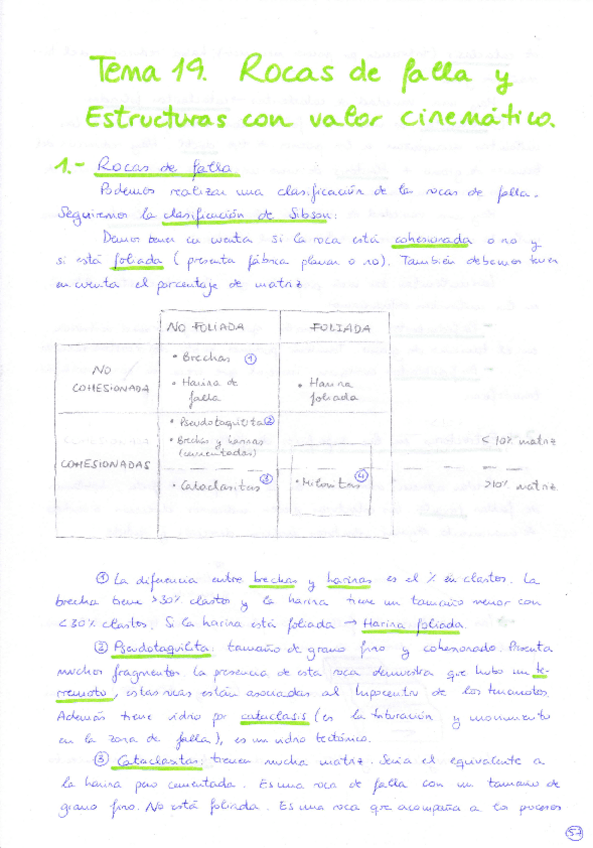 Tema 19. Rocas de falla y
Estructuras con valor cinemático.
1.- Rocas de falla
Podemos realizar una clasificación de la rocas de falla.
Seguiremos la clasificación de Sibson:
Demos tener en cuenta si la roca está cohesionada o no y
si está foliada (presenta fábrica planar o no). También debemos tener
en cuenta el porcentaje de matriz
NO FOLIADA FOLIADA
NO COHESIONADA
• Brechas ①
• Harina de falla
• Harina foliada
COHESIONADAS
• Pseudotaquilita ②
• Brechas y harinas (cementadas)
< 10% matriz
• Cataclasitas ③
• Milonitas ④
>10% matriz
① La diferencia entre brechas y harinas es el % en clastos. La
brecha tiene >30% clastos y la harina tiene un tamaño menor con
<30% clastos. Si la harina está foliada → Harina foliada.
② Pseudotaquilita: tamaño de grano fino y cohesionado. Presenta
muchos fragmentos. La presencia de esta roca demuestra que hubo un te-
rremoto, estas rocas están asociadas al hipocentro de los terremotos.
Además tiene vidrio por cataclasis (es la trituración y movimiento
en la zona de falla), es un vidrio tectónico.
③ Cataclasitas: tienen mucha matriz. Seria el equivalente a
la harina pero cementada. Es una roca de falla con un tamaño de
grano fino. No está foliada. Es una roca que acompaña a los procesos
57